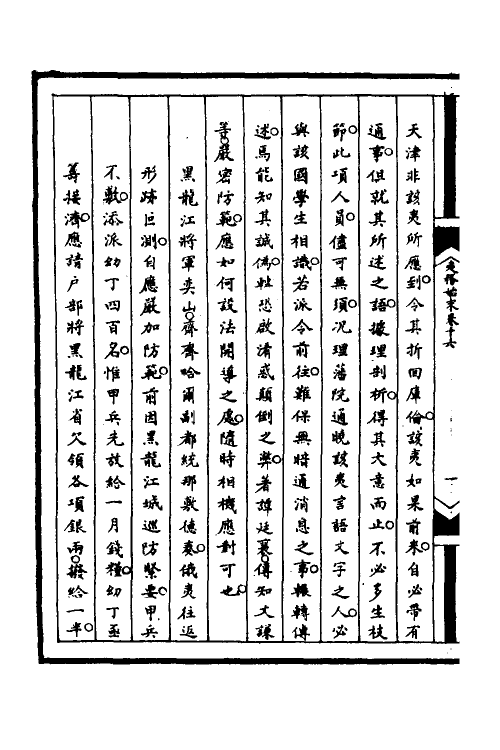 天津非該夷所應到令其折回庫倫該夷如果前來自必帶有
通事但就其所述之語據理剖析得其大意而止不必多生枝
節此項人員儘可無須况理藩院通曉該夷言語文字之人必
與該國學生相識若派令前往難保無暗通消息之事輾轉傳
述焉能知其誠偽祉恐啟淆惑顛倒之弊著譚廷襄傳知文謙
等嚴密防範應如何設法開導之處隨時相機應對可也
黑龍江將軍奕山齊齊哈爾副都統那敷德奏俄夷往返
形跡叵測自應嚴加防範前因黑龍江城巡防緊要甲兵
不敷添派幼丁四百名惟甲兵先放給一月錢糧幼丁亟
籌接濟應請户部將黑龍江省欠領各項銀兩撥給一半
夷務始末卷十六
一